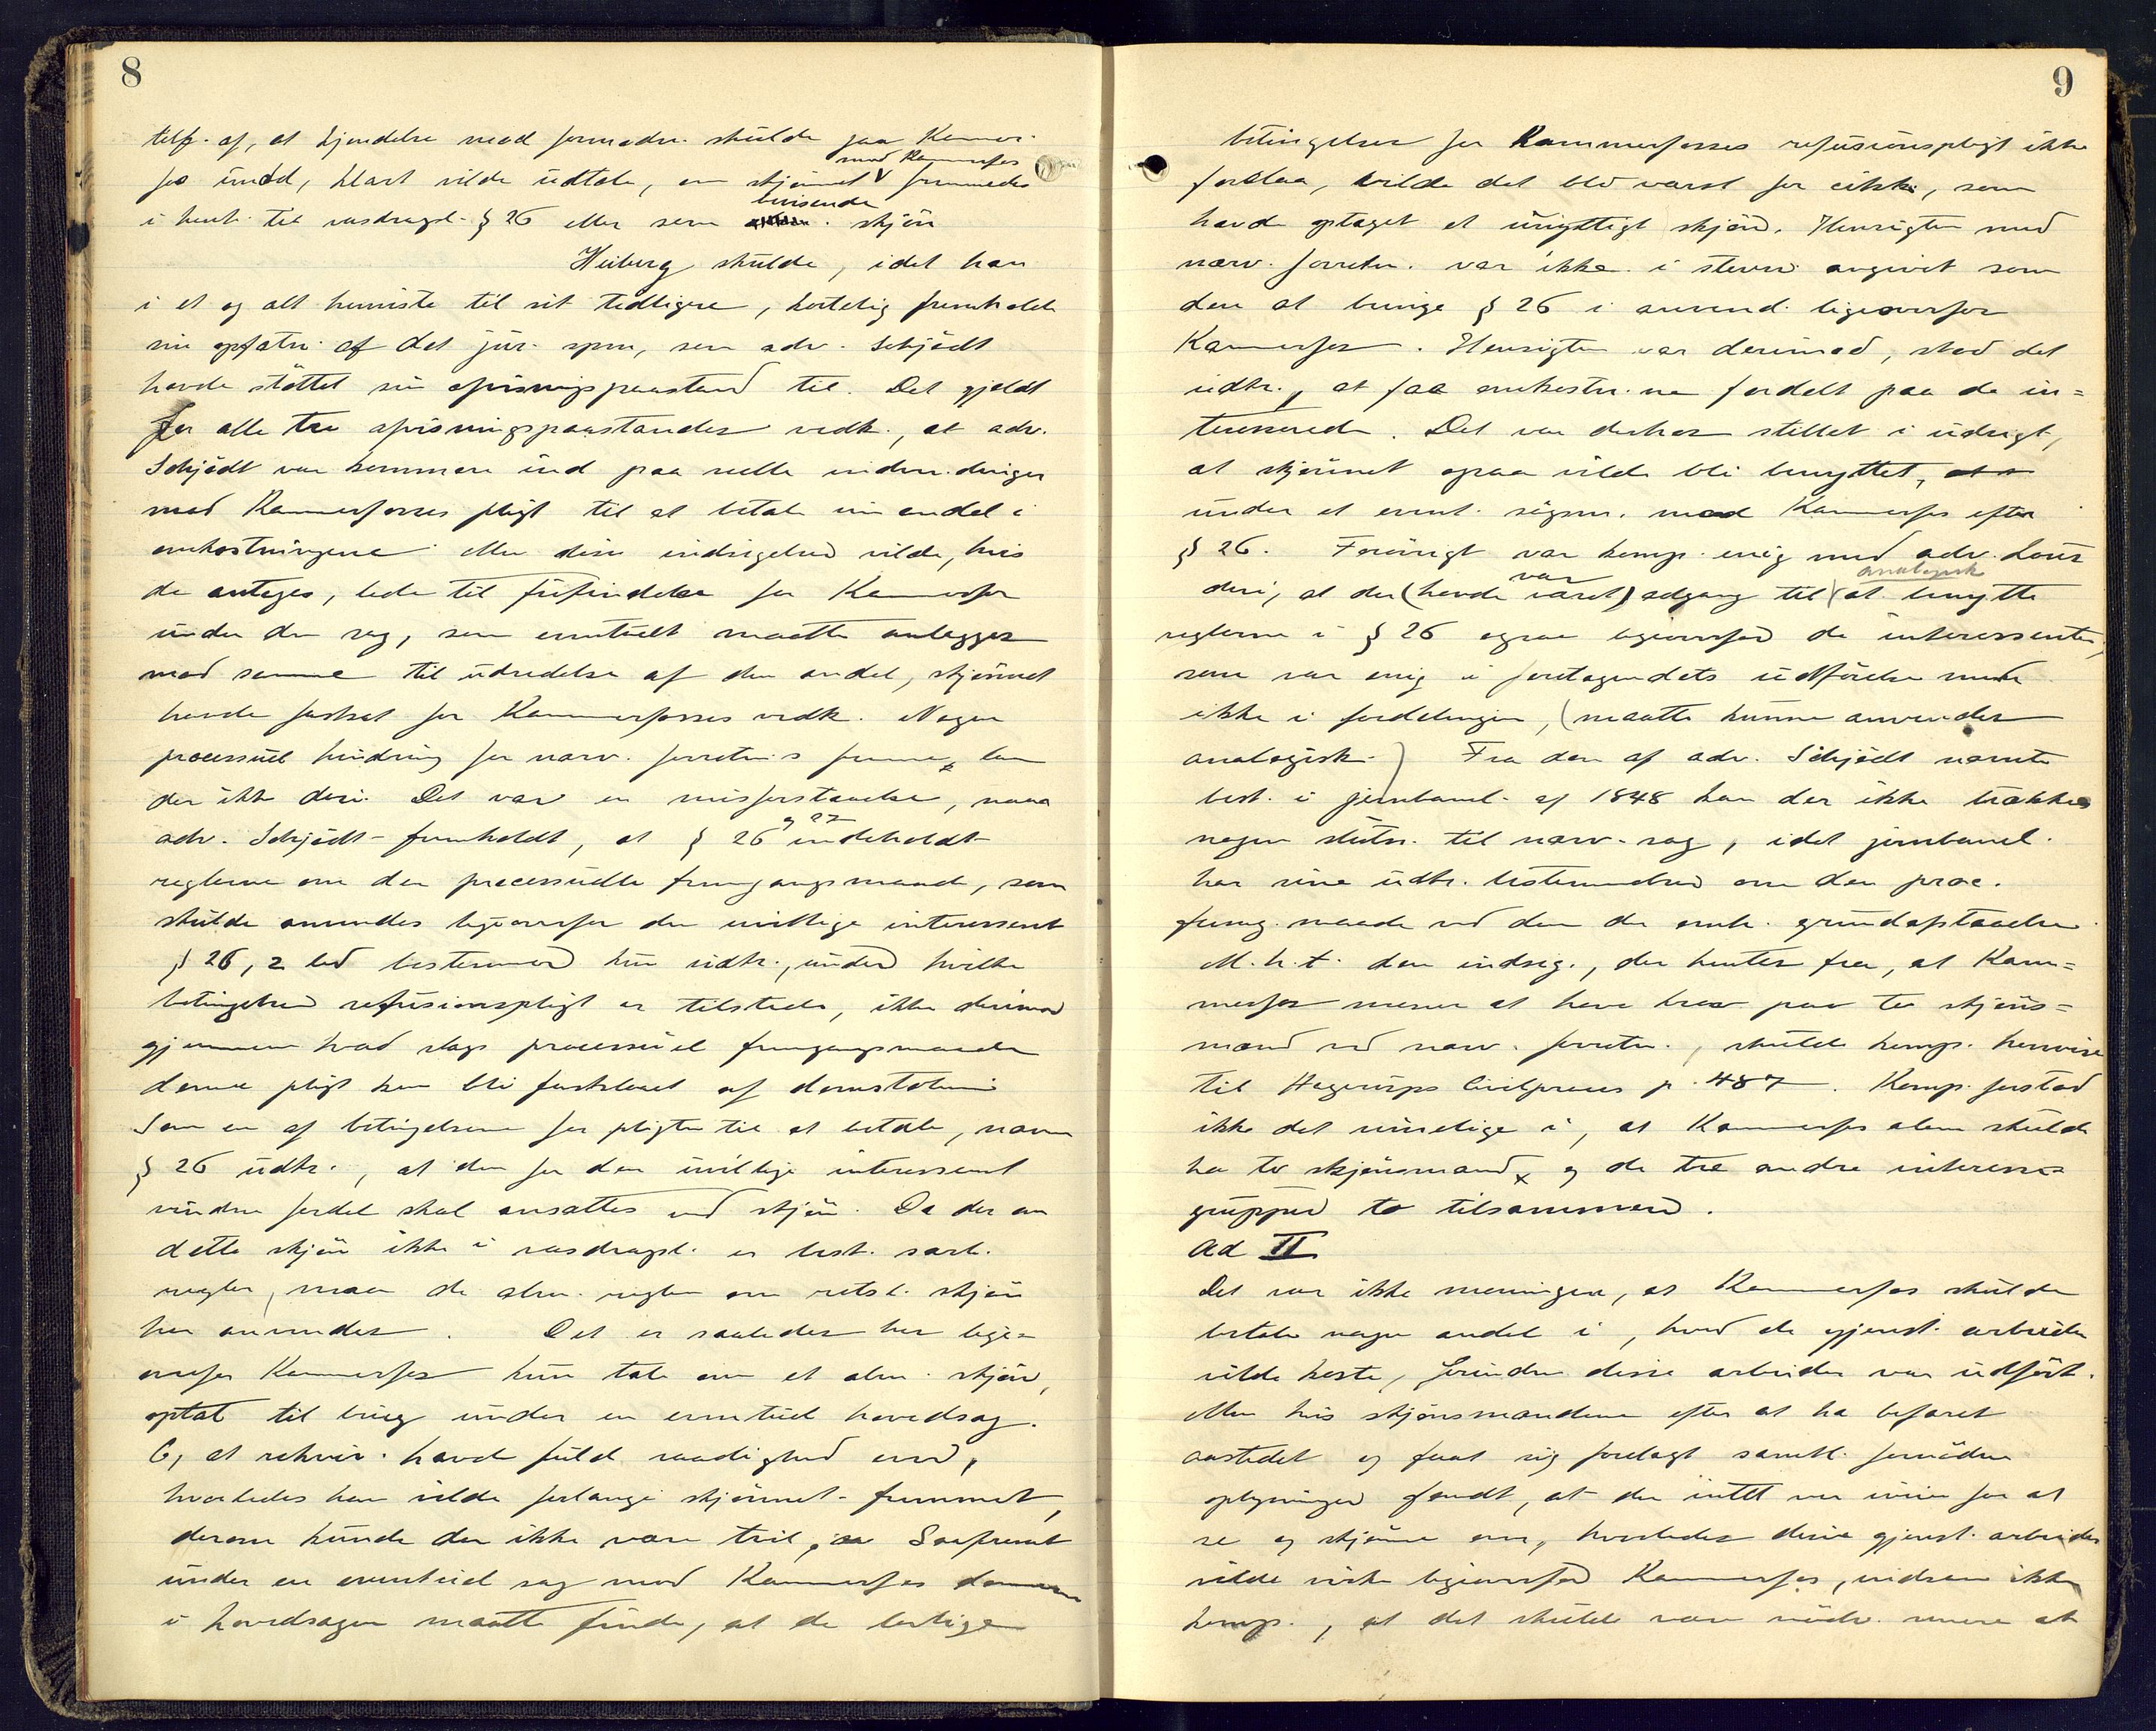 8
telf. af, at kjendelse mod formodn. skulde gaa Kammer-
fos imod, klart vilde udtale, om skjønnet mod Kammerfos fremmedes
i henh. til vasdragsl. § 26 eller som bevisende skjøn
Heiberg skulde, idet han
i et og alt henviste til sit tidligere, kortelig fremholde
sin opfatn. af det jur. spm, som adv. Schjødt
havde støttet sin afvisningspaastand til. Det gjeldt
for alle tre afvisningspaastandes vedk., at adv.
Schjødt var kommen ind paa reelle indven.dinger
mod Kammerfosses pligt til at betale sin andel i
omkostningene. Men disse indsigelser vilde, hvis
de antoges, lede til frifindelse for Kammerfos
under den sag, som eventuelt maatte anlegges
mod samme til udredelse af den andel, skjønnet
havde fastsat for Kammerfosses vedk. Nogen
processuel hindring for nærv. forretnis fremme, laa
der ikke deri. Det var en misforstaaelse, naar
adv. Schjødt fremholdt, at § 26 og 27 indeholdt
reglerne om den processuelle fremgangsmaade, som
skulde anvendes ligeoverfor den uvillige interessent
§ 26, 2 led bestemmer kun udtr., under hvilke
betingelser refusionspligt er tilstede, ikke derimod
gjennem hvad slags processuel fremgangsmaade
denne pligt kan bli fastslaaet af domstolene
Som en af betingelserne for pligten til at betale, nævner
§ 26 udtr., at den for den uvillige interessent
vundne fordel skal ansættes ved skjøn. Da der om
dette skjøn ikke i vasdragsl. er best. særl.
regler, maa de alm. regler om retsl. skjøn
her anvendes. Det er saaledes her lige-
overfor Kammerfos kun tale om et alm. skjøn,
optat til brug under en eventuel hovedsag.
Og at rekvir. havde fuld raadighed over,
hvorledes han vilde forlange skjønnet fremmet,
derom kunde der ikke være tvil. Saafremt
under en eventuel sag mod Kammerfos dommeren
i hovedsagen maatte finde, at de lovlige
9
betingelser for Kammerfosses refusionspligt ikke
forelaa, vilde det blo værst for rekv., som
havde optaget et unyttigt skjøn. Hensigten med
nærv. forretn. var ikke i stevn. angivet som
den at bringe § 26 i anvend. ligeoverfor
Kammerfos. Hensigten var derimod, stod det
udtr., at faa omkostn.ne fordelt paa de in-
teresserede. Det var derhos stillet i udsigt,
at skjønnet ogsaa vilde bli benyttet,
under et event. søgsm. mod Kammerfos efter
§ 26. Forøvrigt var komp. enig med adv. Lous
deri, at der (havde været) var adgang til (at analogisk benytte
reglerne i § 26 ogsaa ligeoverfor de interessenter,
som var enig i foretagendets udførelse men
ikke i fordelingen, (maatte kunne anvendes
analogisk.) Fra den af adv. Schjødt nævnte
best. i jernbanel. af 1848 kan der ikke trækkes
nogen slutn. til nærv. sag, idet jernbanel.
har sine udtr. bestemmelser om den proc.
fremg.maade ved den der omh. grundafstaaelse.
M.h.t. den indsig., der hentes fra, at Kam-
merfos mener at have krav paa to skjøns-
mænd ved nærv. forretn., skulde komp. henvise
til Hagerups Civilproces p. 487. Komp. forstod
ikke det urimelige i, at Kammerfos alene skulde
ha to skjønsmænd og de tre andre interesse-
grupper to tilsammen.
Ad II
Det var ikke meningen, at Kammerfos skulde
betale nogen andel i, hvad de gjenst. arbeider
vilde koste, forinden disse arbeider var udført.
Men hvis skjønsmændene efter at ha befaret
aastedet og faat sig forelagt samtl. fornødne
oplysninger fandt, at der intet var ivejen for at
se og skjønne om, hvorledes disse gjenst. arbeider
vilde virke ligeoverfor Kammerfos, indsaa ikke
komp., at det skulde være nødv. mere at